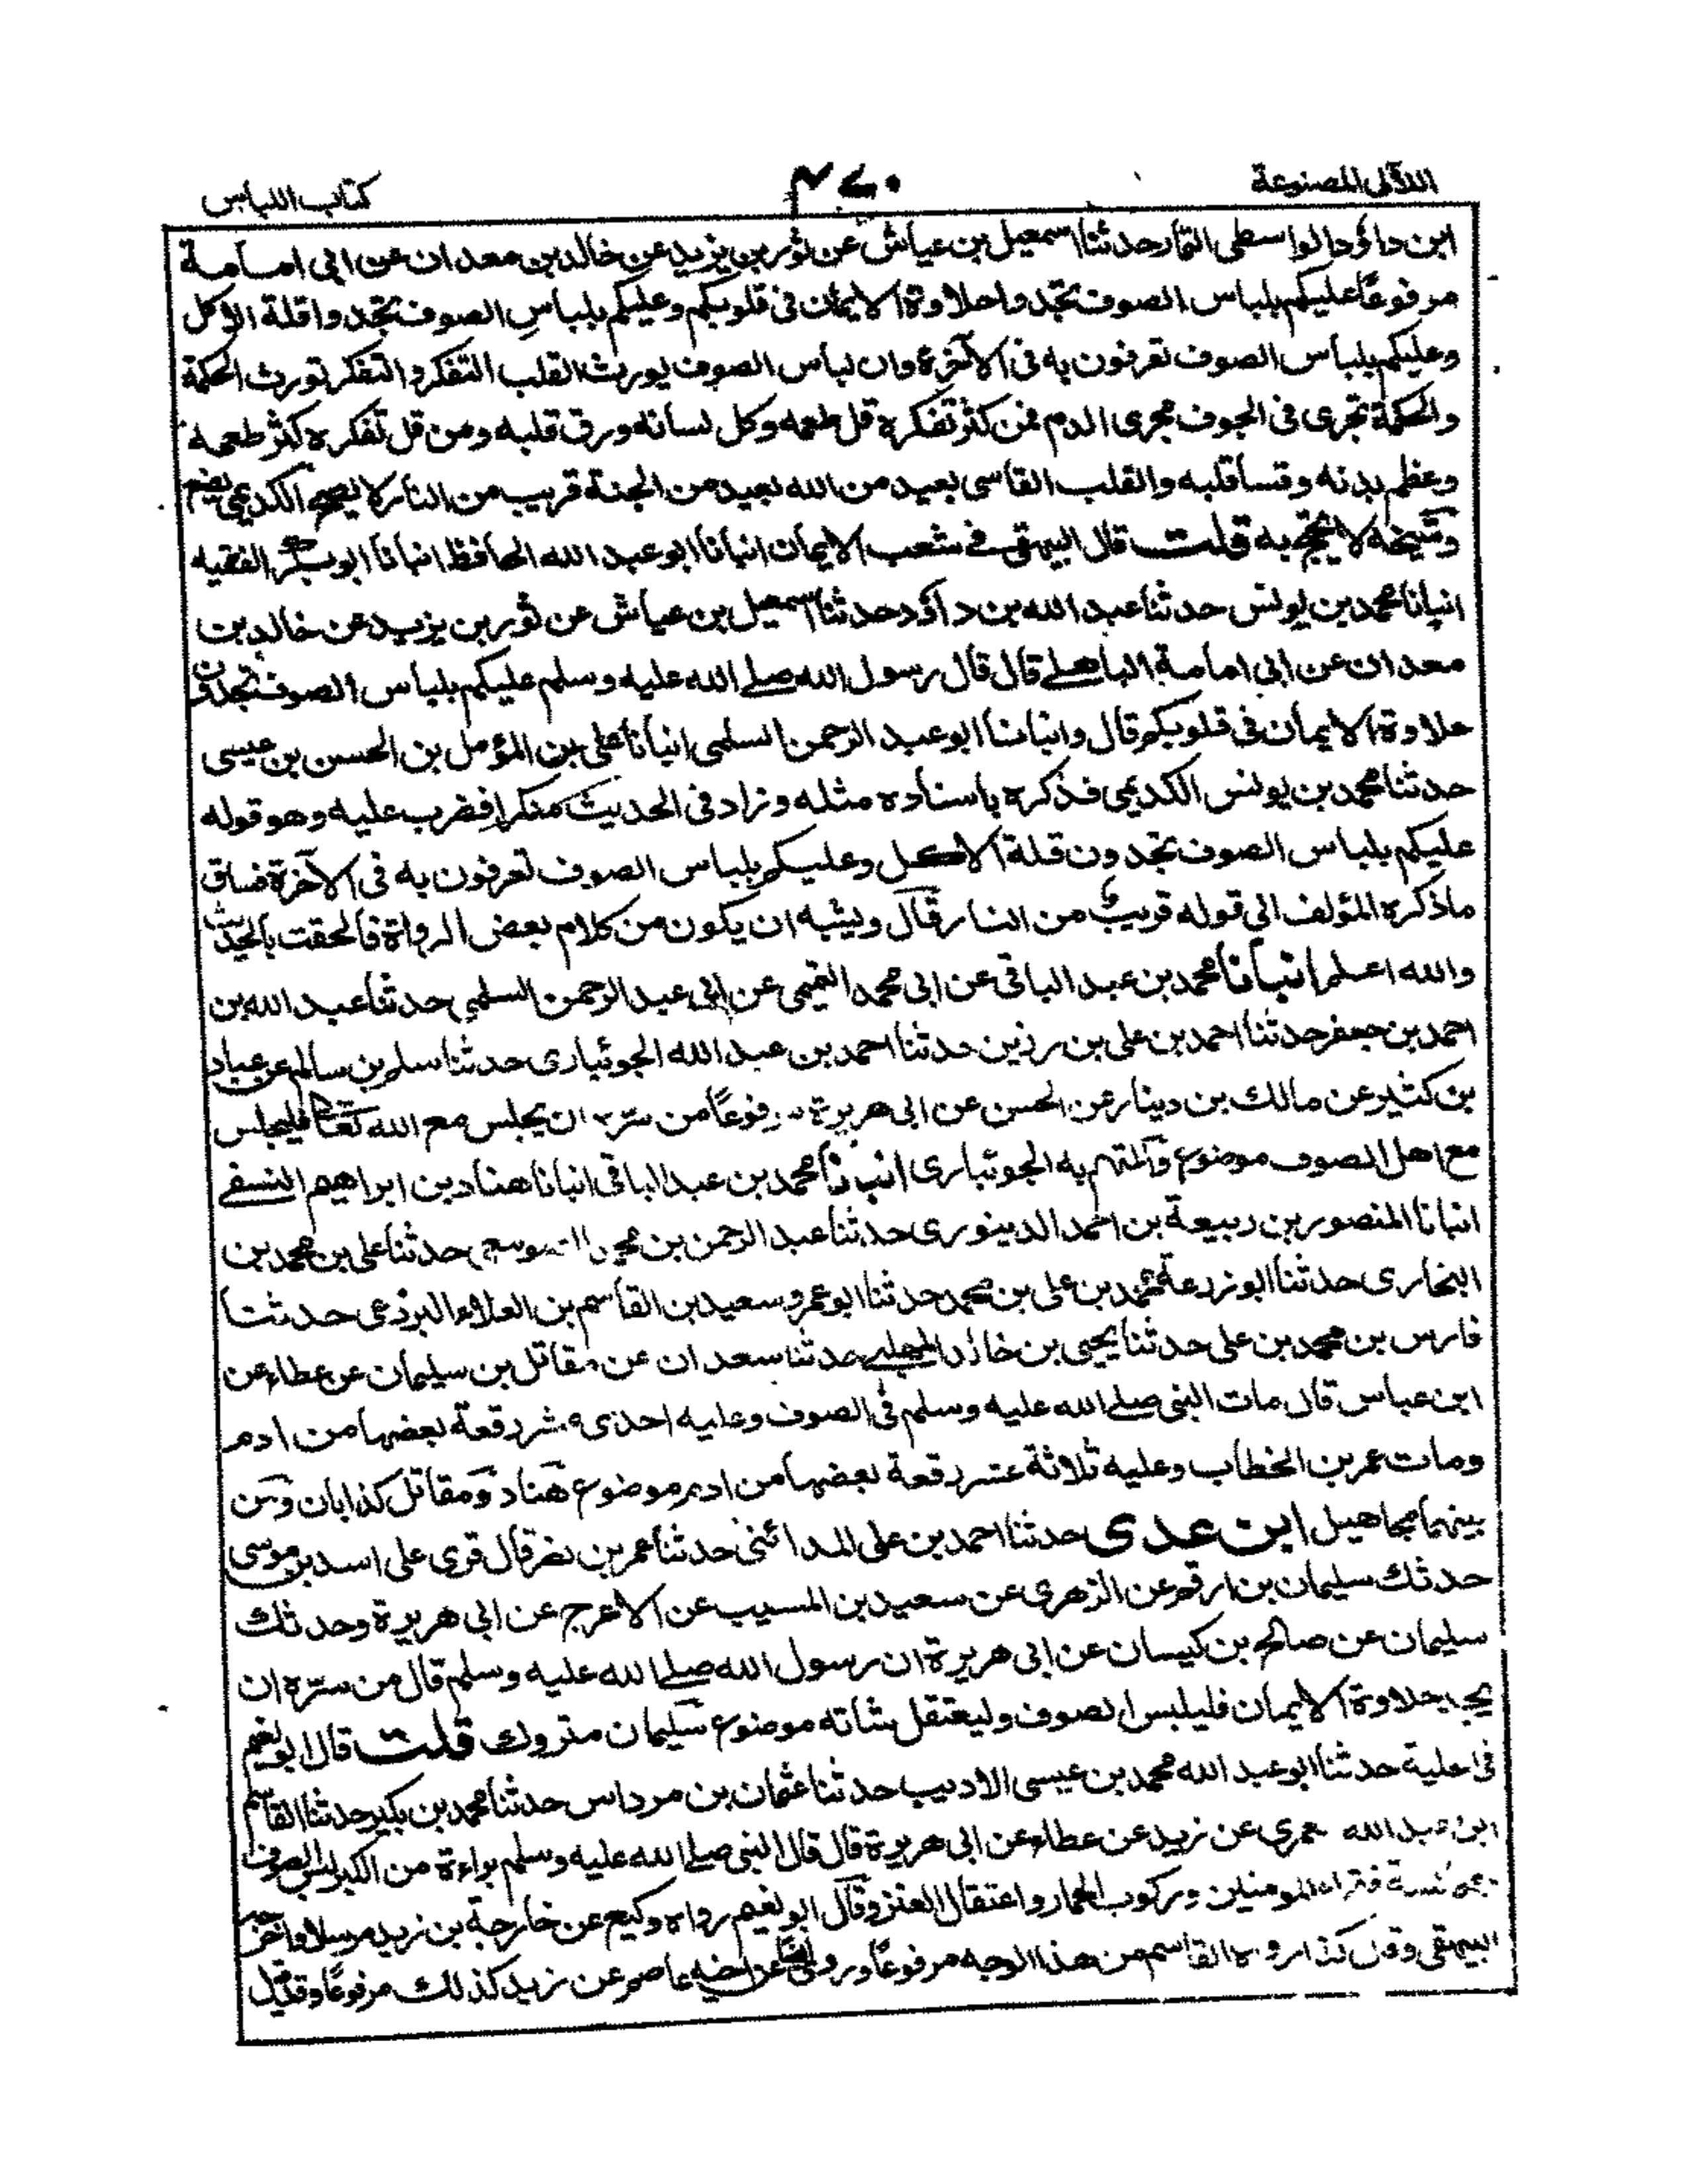 اللآلى المصنوعة
كتاب اللباس
ابن داؤد الواسطى التمار حدثنا اسمعيل بن عياش عن ثور بن يزيد عن خالد بن معدان عن ابى امامة
مرفوعًا عليكم بلباس الصوف تجدوا حلاوة الايمان فى قلوبكم وعليكم بلباس الصوف تجدوا قلة الاكل
وعليكم بلباس الصوف تعرفون به فى الآخرة وان لباس الصوف يورث القلب التفكر والتفكر تورث الحكمة
والحكمة تجرى فى الجوف مجرى الدم فمن كثر تفكره قل طعمه وكل لسانه ورق قلبه ومن قل تفكره كثر طعمه
وعظم بدنه وقسا قلبه والقلب القاسى بعيد من الله بعيد من الجنة قريب من النار لا يصح الكديمى يضع
وشيخه لا يحتج به قلت قال البيهقى فى شعب الايمان انبانا ابو عبد الله الحافظ انبانا ابو بكر الفقيه
انبانا محمد بن يونس حدثنا عبد الله بن داؤد حدثنا اسمعيل بن عياش عن ثور بن يزيد عن خالد بن
معدان عن ابى امامة الباهلے قال قال رسول الله صلے الله عليه وسلم عليكم بلباس الصوف تجدون
حلاوة الايمان فى قلوبكم قال وانبانا ابو عبد الرحمن السلمى انبانا على بن المؤمل بن الحسن بن عيسى
حدثنا محمد بن يونس الكديمى فذكره باسناده مثله وزاد فى الحديث منكرا فضرب عليه وهو قوله
عليكم بلباس الصوف تجدون قلة الاكل وعليكم بلباس الصوف تعرفون به فى الآخرة فساق
ماذكره المؤلف الى قوله قريب من النار قال ويشبه ان يكون من كلام بعض الرواة فالحقت بالحديث
والله اعلم انبانا محمد بن عبد الباقى عن ابى محمد التميمى عن ابى عبد الرحمن السلمى حدثنا عبد الله بن
احمد بن جعفر حدثنا احمد بن على بن رزين حدثنا احمد بن عبد الله الجوئبارى حدثنا سلم بن سالم عن عباد
بن كثير عن مالك بن دينار عن الحسن عن ابى هريرة مرفوعًا من سره ان يجلس مع الله تعالى فليجلس
مع اهل الصوف موضوع والمتهم به الجوئبارى انبانا محمد بن عبد الباقى انبانا هناد بن ابراهيم النسفے
انبانا المنصور بن ربيعة بن احمد الدينورى حدثنا عبد الرحمن بن محمد حدثنا على بن محمد بن
البخارى حدثنا ابو زرعة محمد بن على بن محمد حدثنا ابو عمرو سعيد بن القاسم بن العلاء البرذعى حدثنا
فارس بن محمد بن على حدثنا يحيى بن خالد المهلبے حدثنا سعدان عن مقاتل بن سليمان عن عطاء عن
ابن عباس قال مات النبى صلے الله عليه وسلم فى الصوف وعليه احدى عشر رقعة بعضها من ادم
ومات عمر بن الخطاب وعليه ثلاثة عشر رقعة بعضها من ادم موضوع هناد ومقاتل كذابان ومن
بينهما مجاهيل ابن عدى حدثنا احمد بن على المدائنى حدثنا عمر بن نصر قال قرى على اسد بن موسى
حدثك سليمان بن ارقم عن الزهرى عن سعيد بن المسيب عن الاعرج عن ابى هريرة وحدثك
سليمان عن صالح بن كيسان عن ابى هريرة ان رسول الله صلے الله عليه وسلم قال من سره ان
يجد حلاوة الايمان فليلبس الصوف وليعتقل شاته موضوع سليمان متروك قلت قال ابو نعيم
فى الحلية حدثنا ابو عبد الله محمد بن عيسى الاديب حدثنا عثمان بن مرداس حدثنا محمد بن بكير حدثنا القاسم
ابن عبد الله العمرى عن زيد عن عطاء عن ابى هريرة قال قال النبى صلے الله عليه وسلم براءة من الكبر لبس الصوف
ومجالسة فقراء المومنين وركوب الحمار واعتقال العنز وقال ابو نعيم رواه وكيع عن خارجة بن زيد مرسلا واخرجه
البيهقى وقال كذا رواه القاسم من هذا الوجه مرفوعًا وروى ايضًا عن اخيه عاصم عن زيد كذلك مرفوعًا وقد قيل